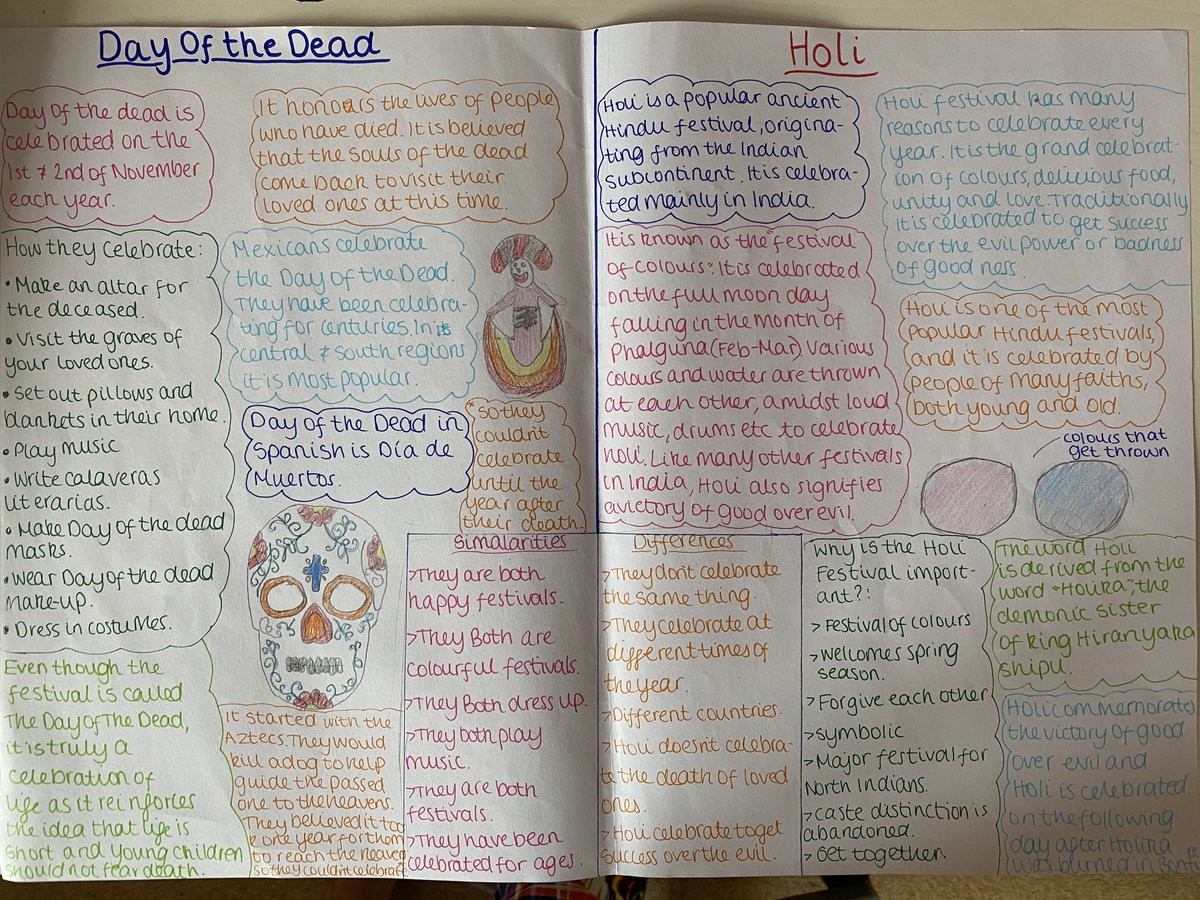 Day Of the Dead
Day Of the dead is
celebrated on the
1st & 2nd of November
each year.
It honours the lives of people
who have died. It is believed
that the souls of the dead
come back to visit their
loved ones at this time.
How they Celebrate:
• Make an altar for
the deceased.
• Visit the graves of
your loved ones.
• Set out pillows and
blankets in their home.
• Play music
• Write calaveras
literarias.
• Make Day of the dead
masks.
• Wear Day of the dead
make-up.
• Dress in costumes.
Mexicans celebrate
the Day of the Dead.
They have been celebra-
ting for centuries. In its
central & south regions
it is most popular.
Day of the Dead in
Spanish is Día de
Muertos.
Even though the
festival is called
The Day Of The Dead,
it is truly a
celebration of
life as it reinforces
the idea that life is
short and young children
should not fear death.
It started with the
Aztecs. They would
kill a dog to help
guide the passed
one to the heavens.
They believed it too
k one year for them
to reach the heaven
so they couldnt celebrate
* so they
couldn't
celebrate
until the
year after
their death.
Similarities
>They are both
happy festivals.
>They Both are
colourful festivals.
>They Both dress up.
>They both play
music.
>They are both
festivals.
>They have been
celebrated for ages.
Holi
Holi is a popular ancient
Hindu festival, origina-
ting from the Indian
subcontinent. It is celebra-
ted mainly in India.
Holi festival has many
reasons to celebrate every
year. It is the grand celebrat-
ion of colours, delicious food,
unity and love. Traditionally
it is celebrated to get success
over the evil power or badness
of good ness.
It is known as the "festival
of colours". It is celebrated
on the full moon day
falling in the month of
Phalguna (Feb-Mar). Various
colours and water are thrown
at each other, amidst loud
music, drums etc to celebrate
holi. Like many other festivals
in India, Holi also signifies
a victory of good over evil.
Holi is one of the most
popular Hindu festivals,
and it is celebrated by
people of many faiths,
both young and old.
colours that
get thrown
Differences
> They dont celebrate
the same thing.
>They celebrate at
different times of
the year.
>Different countries.
>Holi doesn't celebra-
te the death of loved
ones.
>Holi celebrate to get
success over the evil.
Why is the Holi
Festival import-
ant?:
> Festival of colours
>Welcomes spring
season.
> Forgive each other
>symbolic
>Major festival for
North Indians.
>caste distinction is
abandoned.
> Get together
The word Holi
is derived from the
word "Holika", the
demonic sister
of king Hiranyaka
shipu.
Holi commemorate
the victory of good
over evil and
Holi is celebrated
on the following
day after Holika
was burned in